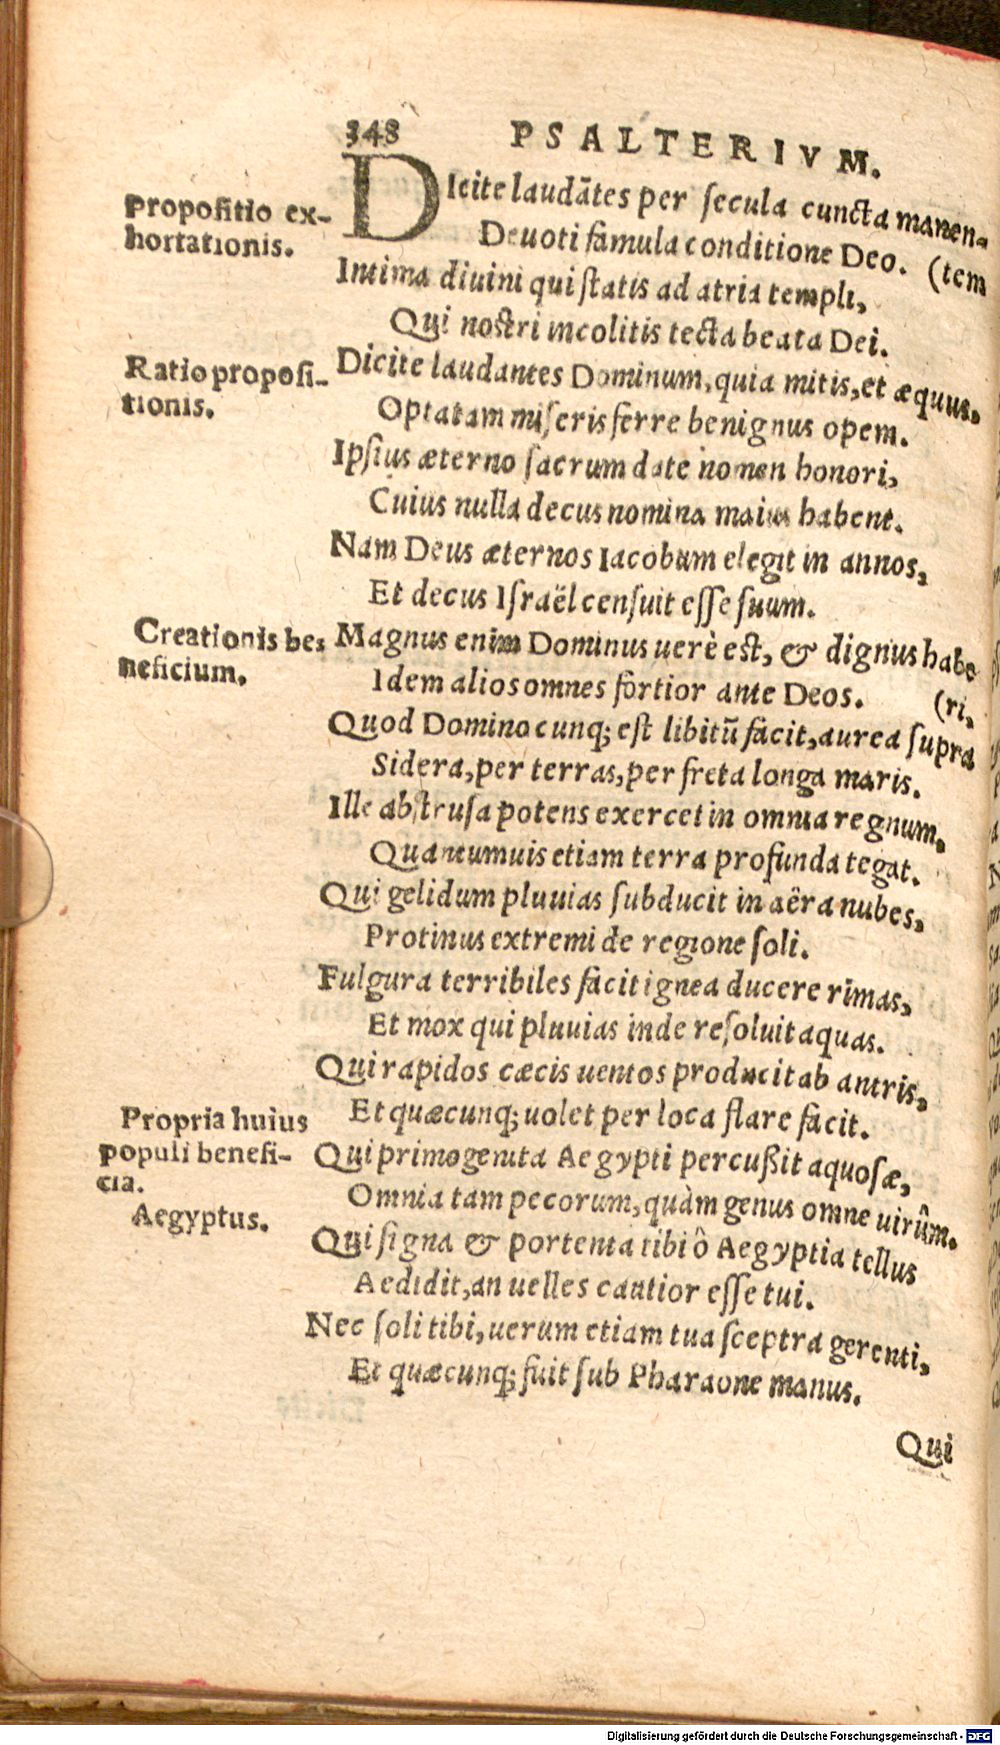 348 PSALTERIVM.
Propositio ex-
hortationis.
DIcite laudātes per secula cuncta manen-
Deuoti famula conditione Deo. (tem
Intima diuini qui statis ad atria templi,
Qui nostri incolitis tecta beata Dei.
Ratio proposi-
tionis.
Dicite laudantes Dominum, quia mitis, et æquus.
Optatam miseris ferre benignus opem.
Ipsius æterno sacrum date nomen honori,
Cuius nulla decus nomina maius habent.
Nam Deus æternos Iacobum elegit in annos,
Et decus Israël censuit esse suum.
Creationis be-
neficium.
Magnus enim Dominus uerè est, & dignus habe
Idem alios omnes fortior ante Deos. (ri,
Quod Domino cunq; est libitū facit, aurea supra
Sidera, per terras, per freta longa maris.
Ille abstrusa potens exercet in omnia regnum.
Quantumuis etiam terra profunda tegat.
Qui gelidum pluuias subducit in aëra nubes,
Protinus extremi de regione soli.
Fulgura terribiles facit ignea ducere rimas,
Et mox qui pluuias inde resoluit aquas.
Qui rapidos cæcis uentos producit ab antris,
Et quæcunq; uolet per loca flare facit.
Propria huius
populi benefi-
cia.
Aegyptus.
Qui primogenita Aegypti percußit aquosæ,
Omnia tam pecorum, quàm genus omne uirûm.
Qui signa & portenta tibi ô Aegyptia tellus
Aedidit, an uelles cautior esse tui.
Nec soli tibi, uerum etiam tua sceptra gerenti,
Et quæcunq; fuit sub Pharaone manus.
Qui
Digitalisierung gefördert durch die Deutsche Forschungsgemeinschaft - DFG